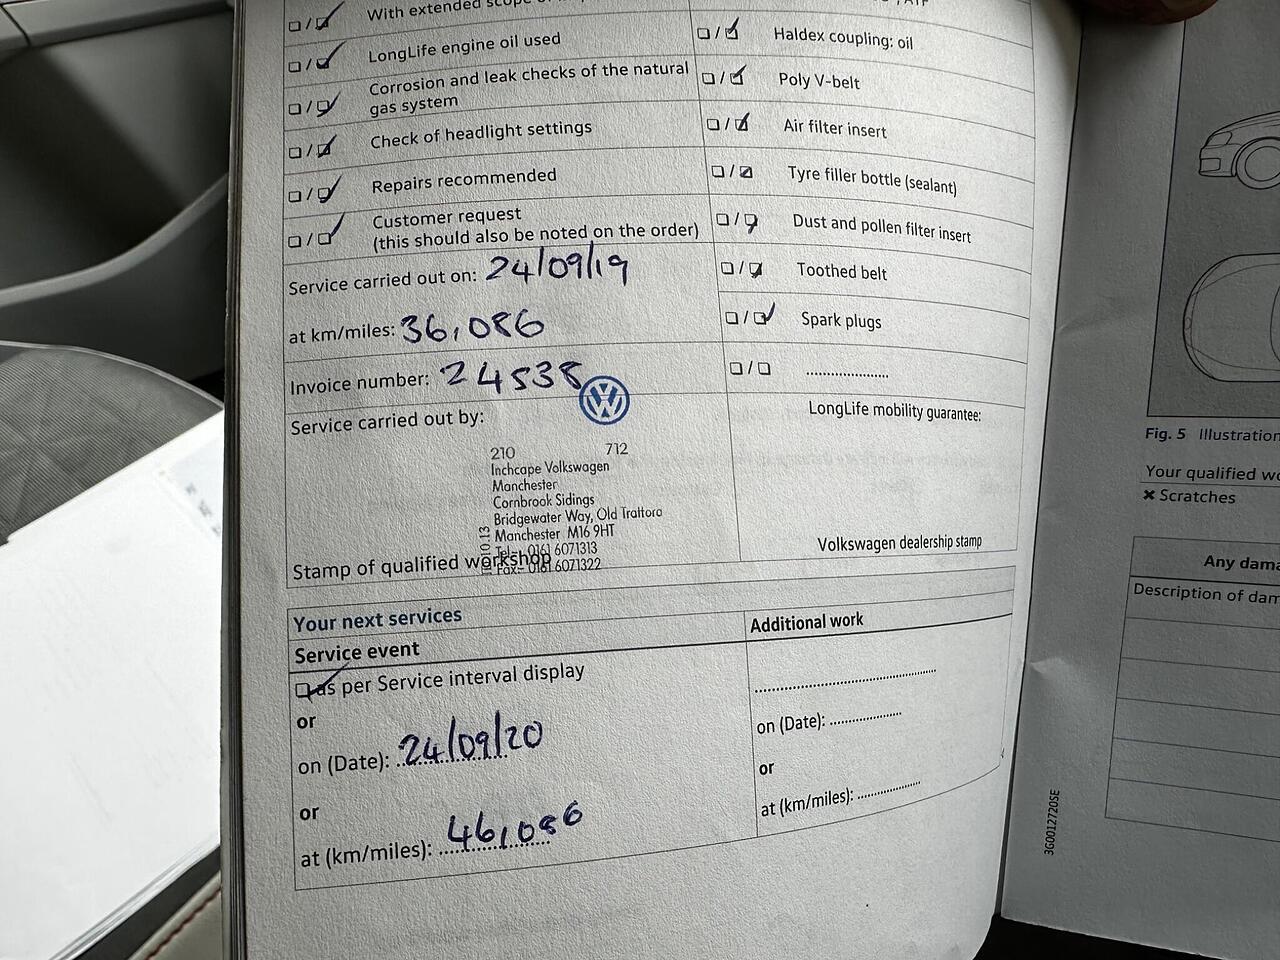 With extended scope
LongLife engine oil used
Corrosion and leak checks of the natural
gas system
Check of headlight settings
Repairs recommended
Customer request
(this should also be noted on the order)
Service carried out on: 24/09/19
at km/miles: 36,086
Invoice number: 24538
Service carried out by:
210 712
Inchcape Volkswagen
Manchester
Cornbrook Sidings
Bridgewater Way, Old Traffora
Manchester M16 9HT
Tel:- 0161 6071313
Fax:- 0161 6071322
10.13
Stamp of qualified workshop
Haldex coupling: oil
Poly V-belt
Air filter insert
Tyre filler bottle (sealant)
Dust and pollen filter insert
Toothed belt
Spark plugs
....................
LongLife mobility guarantee:
Volkswagen dealership stamp
Your next services
Service event
as per Service interval display
or
on (Date): 24/09/20
or
at (km/miles): 46,086
Additional work
on (Date): ..................
or
at (km/miles): ................
3G0012720SE
Fig. 5 Illustration
Your qualified
× Scratches
Any
Description of